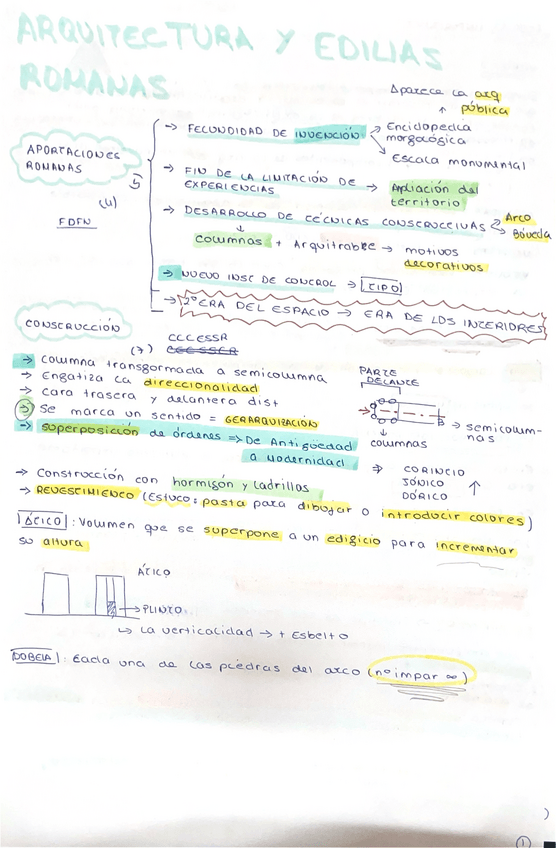 ARQUITECTURA Y EDILIAS
ROMANAS
Aparece la arq
pública
APORTACIONES
ROMANAS
5
(4)
FDFN
→ FECUNDIDAD DE INVENCIÓN
Enciclopedica
morfológica
Escala monumental
→ FIN DE LA LIMITACIÓN DE
EXPERIENCIAS
→ Ampliación del
territorio
→ DESARROLLO DE TÉCNICAS CONSTRUCTIVAS
Arco
Bóveda
columnas + Arquitrabe → motivos
decorativos
→ NUEVO INST DE CONTROL → TIPO
→ 2ª ERA DEL ESPACIO → ERA DE LOS INTERIORES
CONSTRUCCIÓN
(7)
CCCESSR
→ columna transformada a semicolumna
→ Enfatiza la direccionalidad
→ cara trasera y delantera dist
→ Se marca un sentido = GERARQUIZACIÓN
→ superposición de órdenes => De Antigüedad
a Modernidad
PARTE
DELANTE
→ semicolum-
nas
columnas
⇒ CORINTIO
JÓNICO
DÓRICO ↑
→ Construcción con hormigón y ladrillos
→ REVESTIMIENTO (Estuco: pasta para dibujar o introducir colores)
ÁTICO : Volumen que se superpone a un edificio para incrementar
su altura
ÁTICO
→ PLINTO
↳ La verticalidad → + Esbelto
DOBELA : Cada una de las piedras del arco (nº impar ∞)
)
1